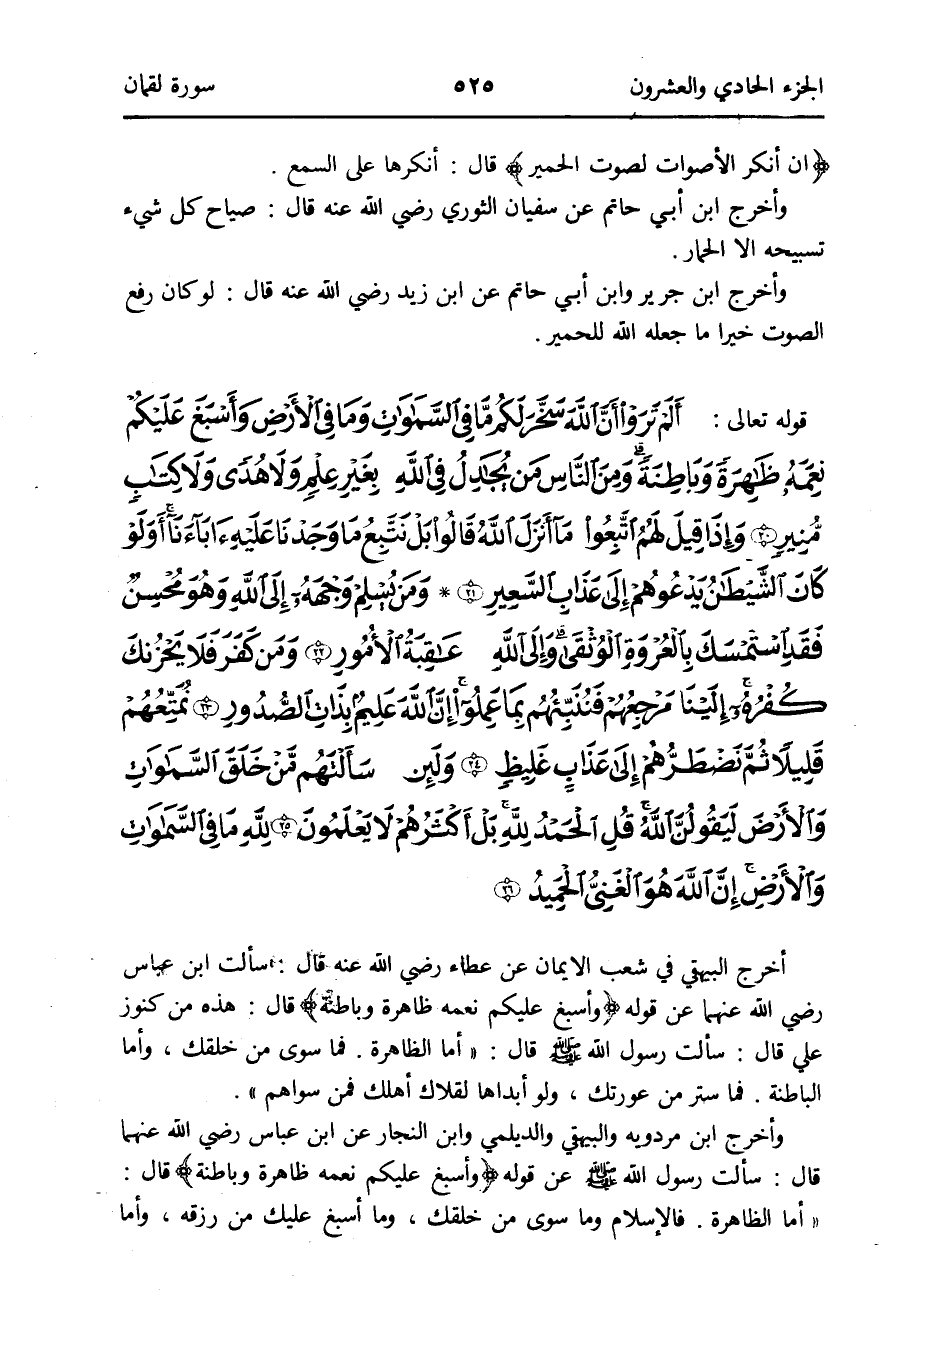 الجزء الحادي والعشرون ٥٢٥ سورة لقمان
﴿ان أنكر الأصوات لصوت الحمير﴾ قال : أنكرها على السمع .
وأخرج ابن أبي حاتم عن سفيان الثوري رضي الله عنه قال : صياح كل شيء
تسبيحه الا الحمار .
وأخرج ابن جرير وابن أبي حاتم عن ابن زيد رضي الله عنه قال : لو كان رفع
الصوت خيرا ما جعله الله للحمير .
قوله تعالى : أَلَمْ تَرَوْا۟ أَنَّ ٱللَّهَ سَخَّرَ لَكُم مَّا فِى ٱلسَّمَٰوَٰتِ وَمَا فِى ٱلْأَرْضِ وَأَسْبَغَ عَلَيْكُمْ
نِعَمَهُۥ ظَٰهِرَةً وَبَاطِنَةً ۗ وَمِنَ ٱلنَّاسِ مَن يُجَٰدِلُ فِى ٱللَّهِ بِغَيْرِ عِلْمٍ وَلَا هُدًى وَلَا كِتَٰبٍ
مُّنِيرٍ ٢٠ وَإِذَا قِيلَ لَهُمُ ٱتَّبِعُوا۟ مَآ أَنزَلَ ٱللَّهُ قَالُوا۟ بَلْ نَتَّبِعُ مَا وَجَدْنَا عَلَيْهِ ءَابَآءَنَآ ۚ أَوَلَوْ
كَانَ ٱلشَّيْطَٰنُ يَدْعُوهُمْ إِلَىٰ عَذَابِ ٱلسَّعِيرِ ٢١ * وَمَن يُسْلِمْ وَجْهَهُۥٓ إِلَى ٱللَّهِ وَهُوَ مُحْسِنٌ
فَقَدِ ٱسْتَمْسَكَ بِٱلْعُرْوَةِ ٱلْوُثْقَىٰ ۗ وَإِلَى ٱللَّهِ عَٰقِبَةُ ٱلْأُمُورِ ٢٢ وَمَن كَفَرَ فَلَا يَحْزُنكَ
كُفْرُهُۥٓ ۚ إِلَيْنَا مَرْجِعُهُمْ فَنُنَبِّئُهُم بِمَا عَمِلُوٓا۟ ۚ إِنَّ ٱللَّهَ عَلِيمٌۢ بِذَاتِ ٱلصُّدُورِ ٢٣ نُمَتِّعُهُمْ
قَلِيلًا ثُمَّ نَضْطَرُّهُمْ إِلَىٰ عَذَابٍ غَلِيظٍ ٢٤ وَلَئِن سَأَلْتَهُم مَّنْ خَلَقَ ٱلسَّمَٰوَٰتِ
وَٱلْأَرْضَ لَيَقُولُنَّ ٱللَّهُ ۚ قُلِ ٱلْحَمْدُ لِلَّهِ ۚ بَلْ أَكْثَرُهُمْ لَا يَعْلَمُونَ ٢٥ لِلَّهِ مَا فِى ٱلسَّمَٰوَٰتِ
وَٱلْأَرْضِ ۚ إِنَّ ٱللَّهَ هُوَ ٱلْغَنِىُّ ٱلْحَمِيدُ ٢٦
أخرج البيهقي في شعب الايمان عن عطاء رضي الله عنه قال : سألت ابن عباس
رضي الله عنهما عن قوله ﴿وأسبغ عليكم نعمه ظاهرة وباطنة﴾ قال : هذه من كنوز
علي قال : سألت رسول الله ﷺ قال : « أما الظاهرة . فما سوى من خلقك ، وأما
الباطنة . فما ستر من عورتك ، ولو أبداها لقلاك أهلك فمن سواهم » .
وأخرج ابن مردويه والبيهقي والديلمي وابن النجار عن ابن عباس رضي الله عنهما
قال : سألت رسول الله ﷺ عن قوله ﴿وأسبغ عليكم نعمه ظاهرة وباطنة﴾ قال :
« أما الظاهرة . فالإسلام وما سوى من خلقك ، وما أسبغ عليك من رزقه ، وأما